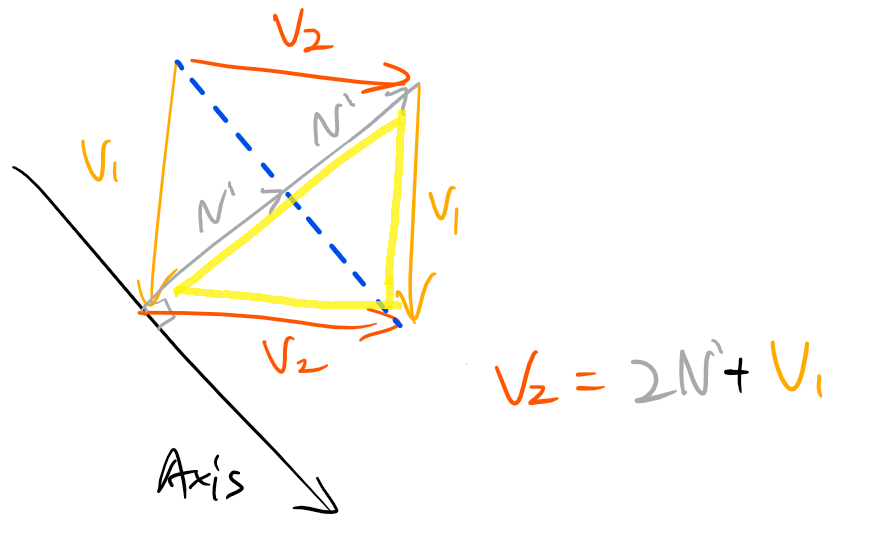 V2
N'
V1
N'
V1
V2
V2 = 2N' + V1
Axis